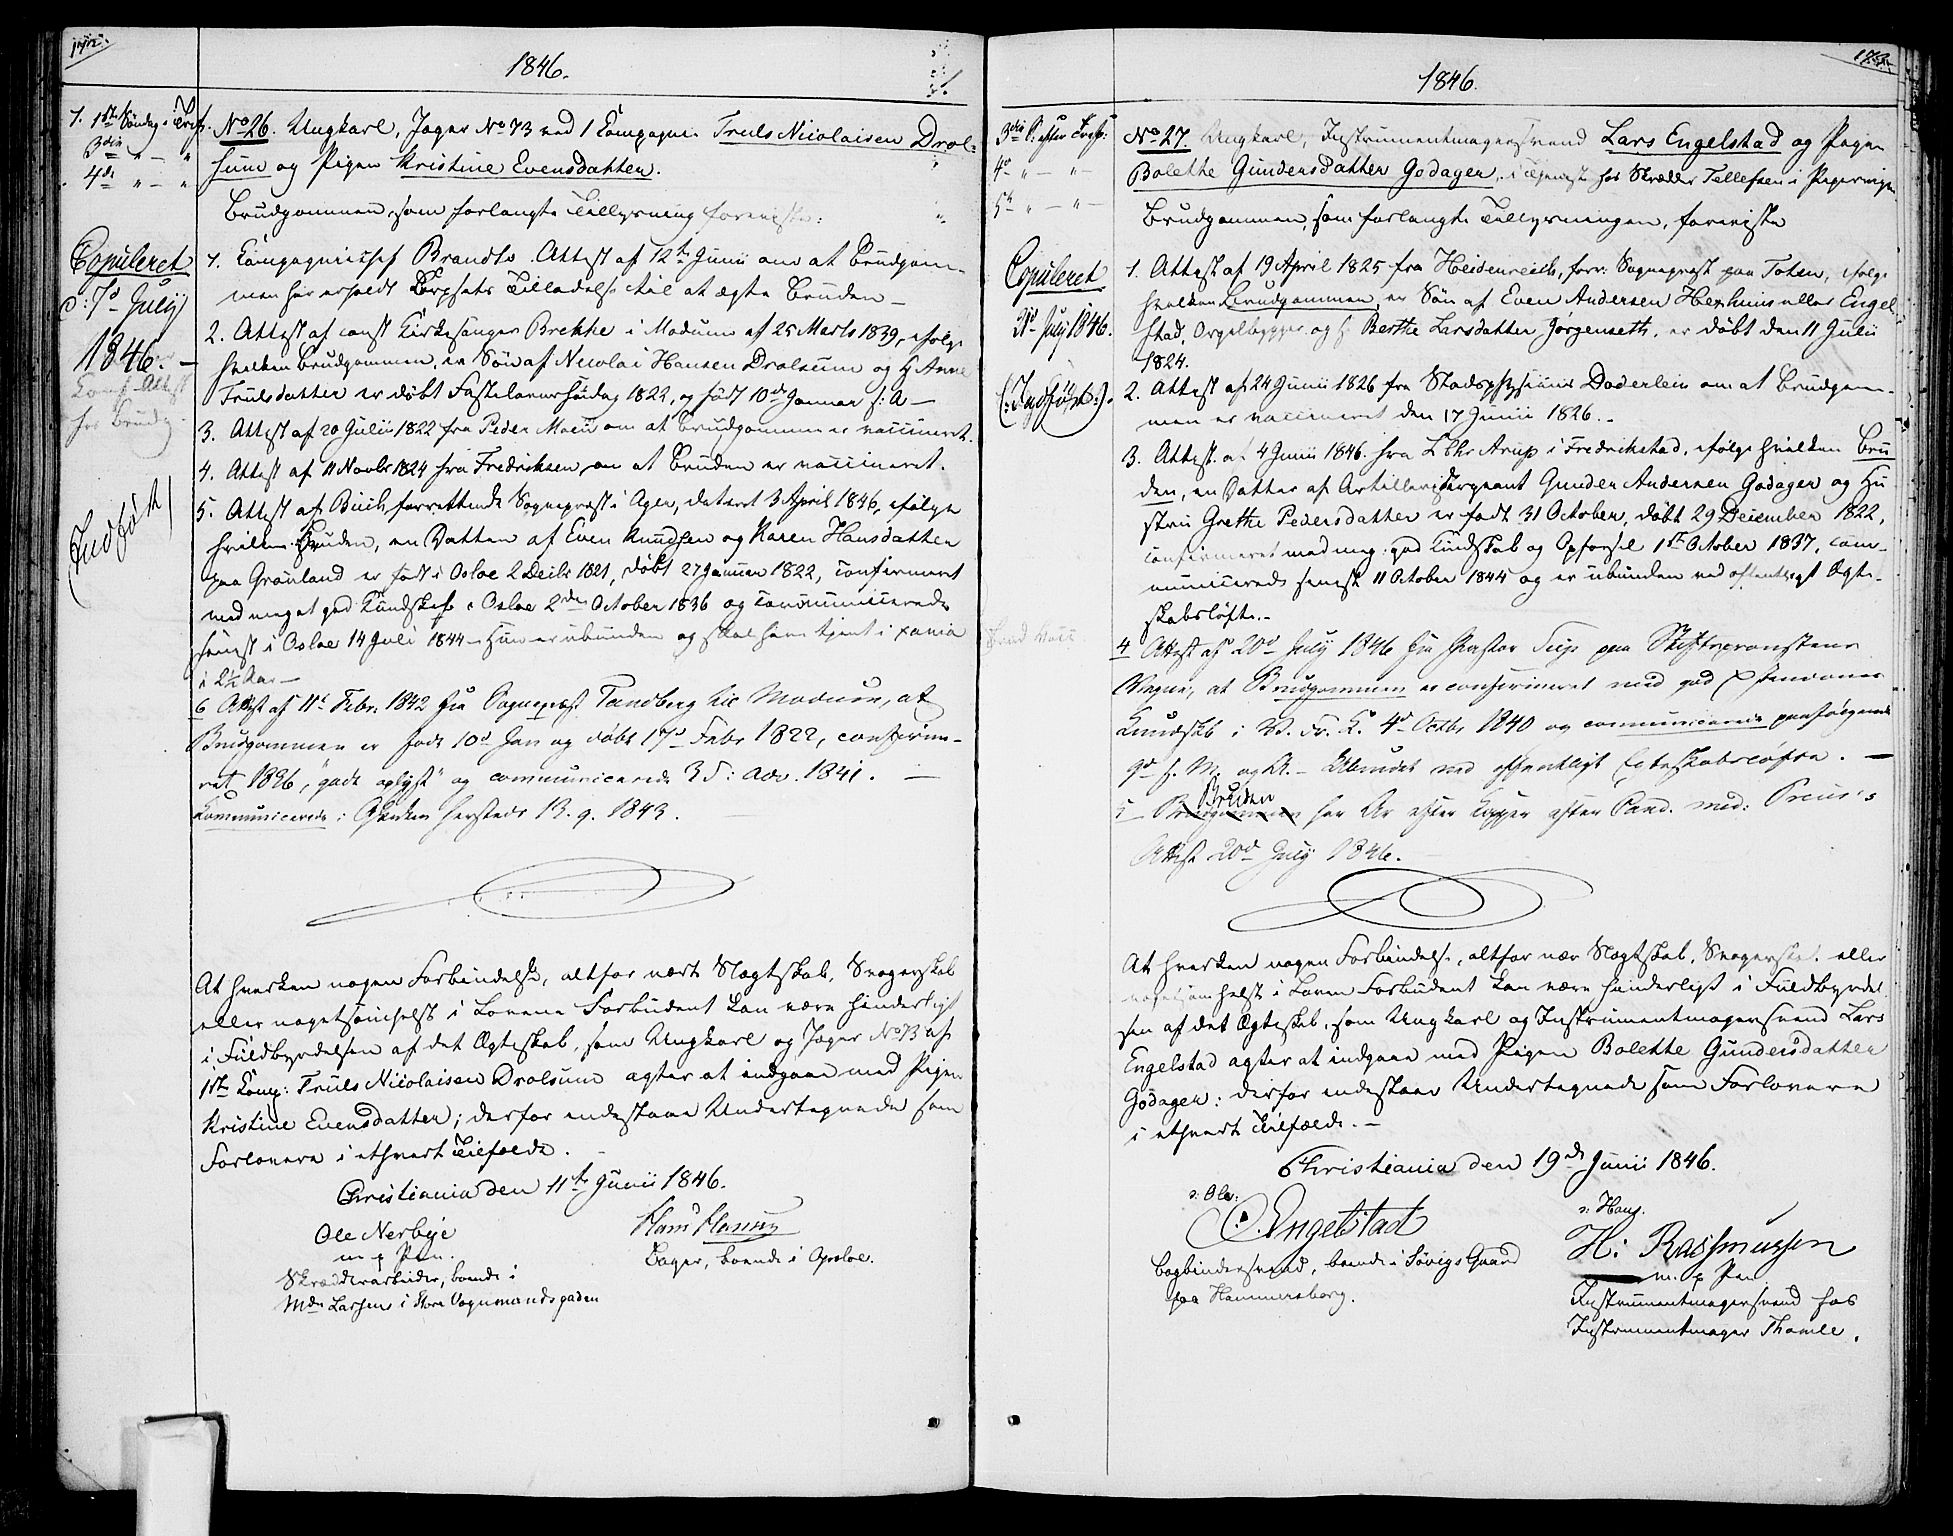 172.
1846.
1. 1ste Søndag e. Tref.
3die " — "
4de " — "
No 26. Ungkarl, Jæger No 73 ved 1 Compagnie Truls Nicolaisen Drol-
sum og Pigen Kristine Evensdatter.
Brudgommen, som forlangte Tillysning foreviste:
Copuleret
d: 7de Julij
1846. —
Conf. Attest
for Brudg.
(Indført)
1. Compagniechef Brandts Attest af 12te Junii om at Brudgom-
men har erholdt Corpsets Tilladelse til at ægte Bruden —
2. Attest af const Kirkesanger Brekke i Modum af 25 Marts 1839, ifølge
hvilken Brudgommen, en Søn af Nicolai Hansen Drolsum og H Anne
Trulsdatter er døbt Fastelavnssøndag 1822, og født 10de Januar s: A —
3. Attest af 20 Julii 1822 fra Peder Moen om at Brudgommen er vaccineret.
4. Attest af 11 Novbr 1824 fra Fredriksen, om at Bruden er vaccineret.
5. Attest af Buch, forrettende Sognepræst i Ager, dateret 3 April 1846, ifølge
hvilken Bruden, en Datter af Even Knudsen og Karen Hansdatter
paa Grønland er født i Osloe 2 Decbr 1821, døbt 27 Januar 1822, confirmeret
med meget god Kundskab i Osloe 2den October 1836 og communicerede
senest i Osloe 14 Juli 1844 — Hun er ubunden og skal have tjent i Xania
i 2½ Aar —
6 Attest af 11te Febr: 1842 fra Sognepræst Tandberg til Modum, at
Brudgommen er født 10de Jan og døbt 17de Febr 1822, confirme-
ret 1836, "godt oplyst" og communicerede 3 S: Adv. 1841. —
Kommunicerede i Garnisonen hersteds 13. 9. 1843.
At hverken nogen Forbindelse, altfor nært Slægtskab, Svogerskab
eller nogetsomhelst i Lovene Forbudent kan være hinderligt
i Fuldbyrdelsen af det Ægteskab, som Ungkarl og Jæger No 73 af
1ste Comp: Truls Nicolaisen Drolsum agter at indgaae med Pigen
Kristine Evensdatter; derfor indestaae Undertegnede som
Forlovere i ethvert Tilfælde.
Christiania den 11te Junii 1846.
Ole Nerbye
m p Pen.
Skrædderarbeider, boende i
Mdm Larsens i Store Vognmandsgaden
Hans Hansen
Bager, boende i Opsloe.
173.
1846.
3die S: efter Tref:
4de " — " —
5te " — " —
No 27. Ungkarl, Instrumentmagersvend Lars Engelstad og Pigen
Bolette Gundersdatter Godager, i Tjeneste hos Skræder Tellefsen i Pipervigen
Brudgommen, som forlangte Tillysningen, foreviste
Copuleret
21de July 1846.
(: Indført :).
1. Attest af 19 April 1825 fra Heidenreich, forr: Sognepræst paa Toten, ifølge
hvilken Brudgommen, er Søn af Even Andersen Hexhuus eller Engel-
stad, Orgelbygger og H. Berthe Larsdatter Jørgenseth, er døbt den 11 Julii
1824.
2. Attest af 24 Junii 1826 fra Stadsphysicus Døderlein om at Brudgom-
men er vaccineret den 17 Junii 1826. —
3. Attest af 4 Junii 1846 fra L Chr Arup i Fredrikstad, ifølge hvilken Bru
den, en Datter af Artilleriesergeant Gunder Andersen Godager og Hu
stru Grethe Pedersdatter er født 31 October, døbt 29 December 1822,
confirmeret med meg. god Kundskab og Opførsel 1ste October 1837, com-
municerede senest 11 October 1844 og er ubunden ved offentligt Ægte-
skabsløfte. —
Brud Vacc
4 Attest af 20de July 1846 fra Pastor Tuje paa Stiftsprovstens
Vegne, at Brudgommen er confirmeret med god Christendoms
Kundskb i V. Fr. K. 4de Octbr 1840 og communicerede paafølgende
9de s. M. og A. — Ubunden ved offentligt Egteskabsløfte. —
5 Brudgommen Bruden har Ar efter Kopper efter Cand. med: Preus's
Attest 20de July 1846.
At hverken nogen Forbindelse, altfor nær Slægtskab, Svogerskab eller
nogetsomhelst i Loven Forbudent kan være hinderligt i Fuldbyrdel
sen af det Ægteskab, som Ungkarl og Instrumentmagersvend Lars
Engelstad agter at indgaae med Pigen Bolette Gundersdatter
Godager: derfor indestaae Undertegnede som Forlovere
i ethvert Tilfælde. —
Christiania den 19de Junii 1846.
: Ole:
O. Engelstad
Bogbindersvend, boende i Søvigs Gaard
paa Hammersborg.
: Hans.
H: Rasmussen
m. p Pen
Instrumentmagersvend hos
Instrumentmager Thomle.